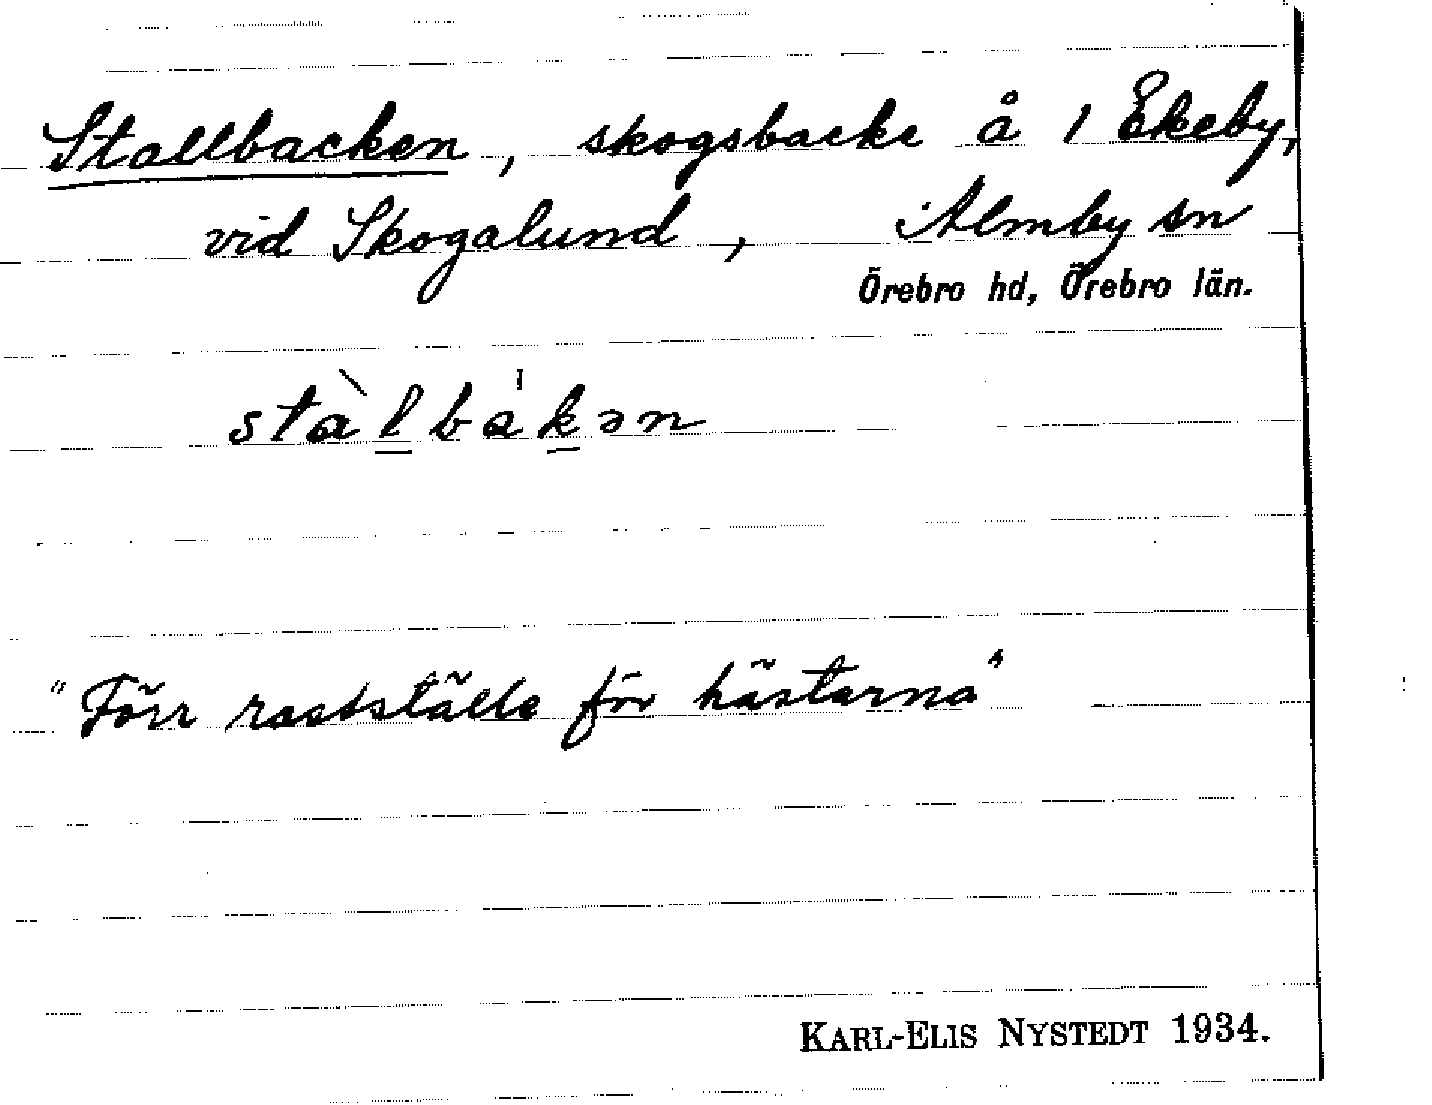 Stallbacken, skogsbacke å 1 Ekeby,
vid Skogalund, Almby sn
Örebro hd, Örebro län.
stàlbákən
"Förr rastställe för hästarna"
KARL-ELIS NYSTEDT 1934.